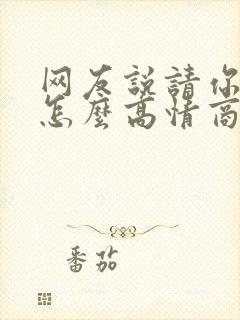 网友説請你
怎麼高情商
番茄